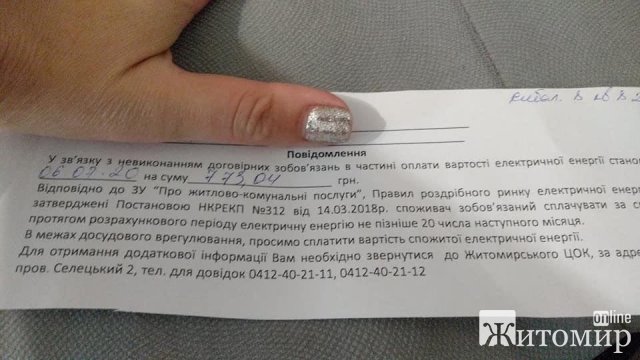 Повідомлення
У зв'язку з невиконанням договірних зобов'язань в частині оплати вартості електричної енергії стано
06.07.20 на суму 773,04 грн.
Відповідно до ЗУ "Про житлово-комунальні послуги", Правил роздрібного ринку електричної енергі
затверджені Постановою НКРЕКП №312 від 14.03.2018р. споживач зобов'язаний сплачувати за с
протягом розрахункового періоду електричну енергію не пізніше 20 числа наступного місяця.
В межах досудового врегулювання, просимо сплатити вартість спожитої електричної енергії.
Для отримання додаткової інформації Вам необхідно звернутися до Житомирського ЦОК, за адре
пров. Селецький 2, тел. для довідок 0412-40-21-11, 0412-40-21-12
online
Житомир